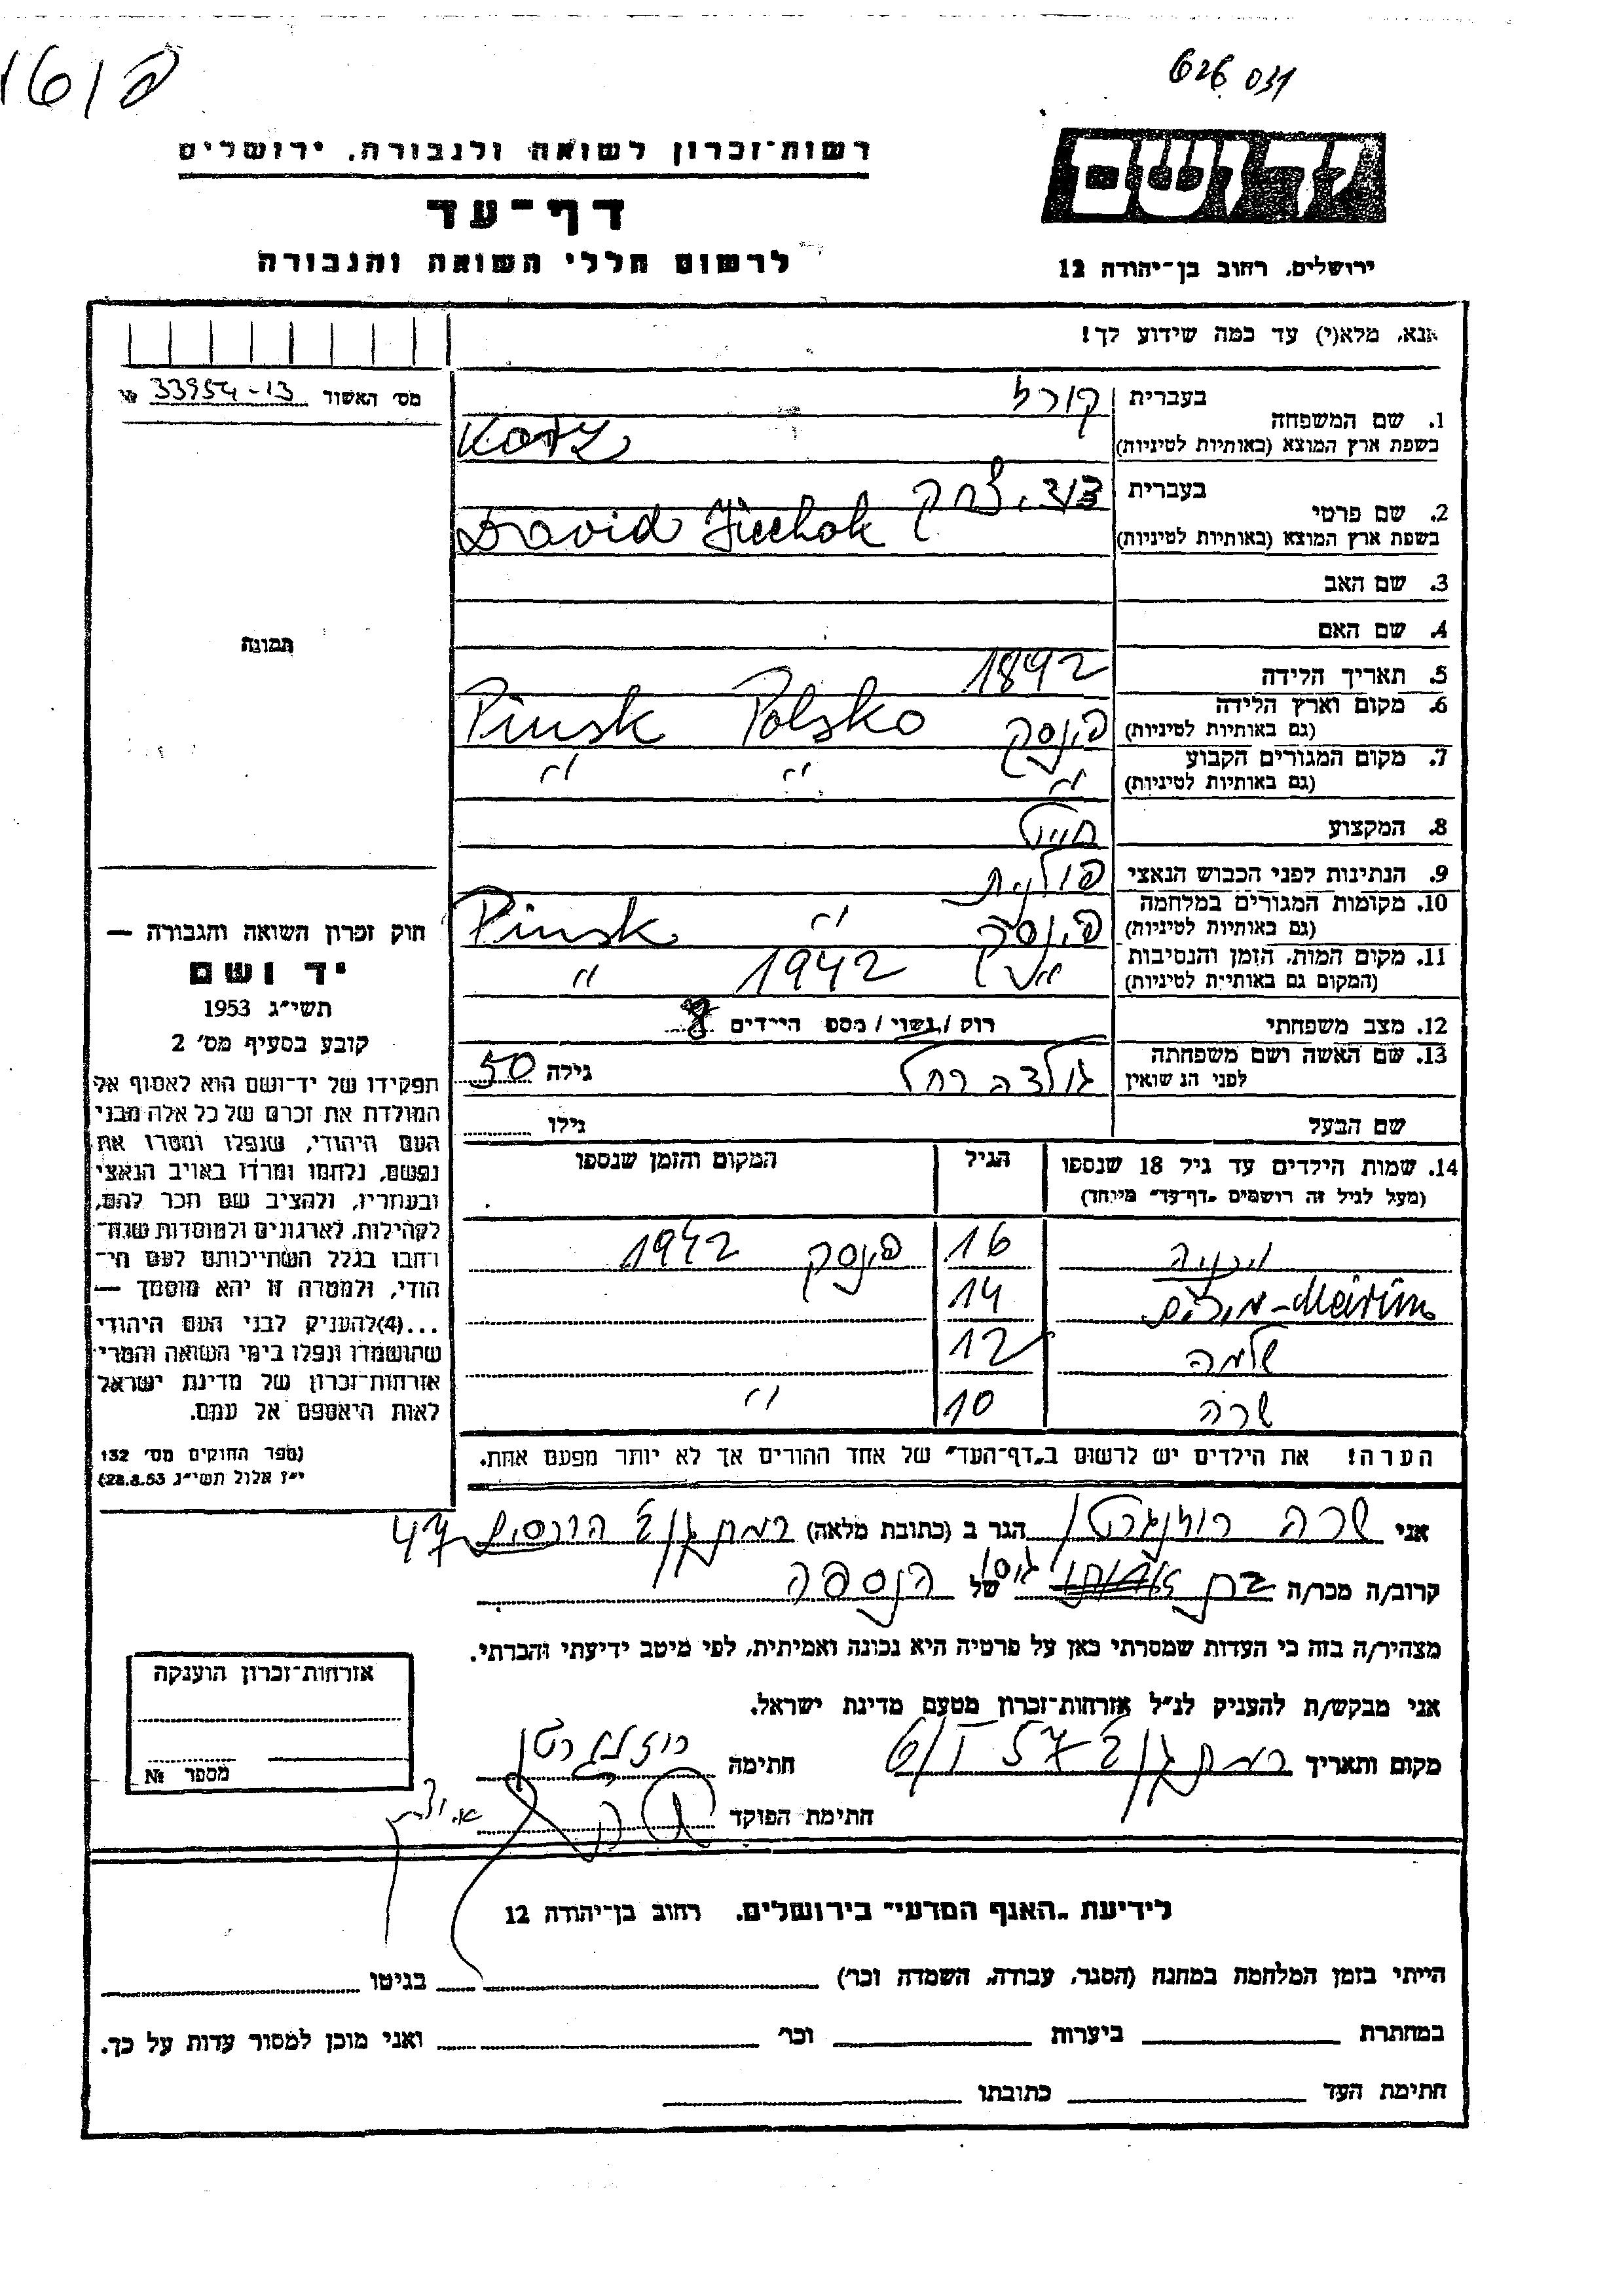 626 031
יד ושם
ירושלים, רחוב בן־יהודה 12
רשות־זכרון לשואה ולגבורה, ירושלים
דף־עד
לרשום חללי השואה והגבורה
אנא, מלא(י) עד כמה שידוע לך!
מס׳ האשור 33954-13 №
1. שם המשפחה
בעברית
בשפת ארץ המוצא (באותיות לטיניות)
2. שם פרטי
בעברית דוד יצחק
בשפת ארץ המוצא (באותיות לטיניות) David
3. שם האב
4. שם האם
5. תאריך הלידה 1892
6. מקום וארץ הלידה
(גם באותיות לטיניות) פינסק Pinsk Polsko
7. מקום המגורים הקבוע
(גם באותיות לטיניות) " " "
8. המקצוע
9. הנתינות לפני הכבוש הנאצי פולנית
10. מקומות המגורים במלחמה
(גם באותיות לטיניות) פינסק " Pinsk
11. מקום המות, הזמן והנסיבות
(המקום גם באותיות לטיניות) 1942 "
12. מצב משפחתי רוק / נשוי / מספר הילדים 8
13. שם האשה ושם משפחתה
לפני הנשואין גולדה רחל גילה 50
שם הבעל גילו
14. שמות הילדים עד גיל 18 שנספו
(מעל לגיל זה רושמים „דף־עד״ מיוחד)
הגיל
המקום והזמן שנספו
16 פינסק 1942
14
שלמה 12
שרה 10 "
הערה! את הילדים יש לרשום ב„דף־העד״ של אחד ההורים אך לא יותר מפעם אחת.
תמונה
חוק זכרון השואה והגבורה —
יד ושם
תשי״ג 1953
קובע בסעיף מס׳ 2
תפקידו של יד־ושם הוא לאסוף אל
המולדת את זכרם של כל אלה מבני
העם היהודי, שנפלו ומסרו את
נפשם, נלחמו ומרדו באויב הנאצי
ובעוזריו, ולהציב שם וזכר להם,
לקהילות, לארגונים ולמוסדות שנח־
רבו בגלל השתייכותם לעם הי־
הודי, ולמטרה זו יהא מוסמך —
...(4) להעניק לבני העם היהודי
שהושמדו ונפלו בימי השואה והמרי
אזרחות־זכרון של מדינת ישראל
לאות היאספם אל עמם.
(ספר החוקים מס׳ 132
י״ז אלול תשי״ג 28.8.53)
אני שרה רוזנגרטן הגר ב (כתובת מלאה) רמת גן 47
קרוב/ה מכר/ה בת של הנספה
מצהיר/ה בזה כי העדות שמסרתי כאן על פרטיה היא נכונה ואמיתית, לפי מיטב ידיעתי והכרתי.
אני מבקש/ת להעניק לנ״ל אזרחות־זכרון מטעם מדינת ישראל.
מקום ותאריך רמת גן חתימה רוזנגרטן
חתימת הפוקד
אזרחות־זכרון הוענקה
מספר №
לידיעת „האגף המדעי״ בירושלים, רחוב בן־יהודה 12
הייתי בזמן המלחמה במחנה (הסגר, עבודה, השמדה וכו׳) בגיטו
במחתרת ביערות וכו׳ ואני מוכן למסור עדות על כך.
חתימת העד כתובתו